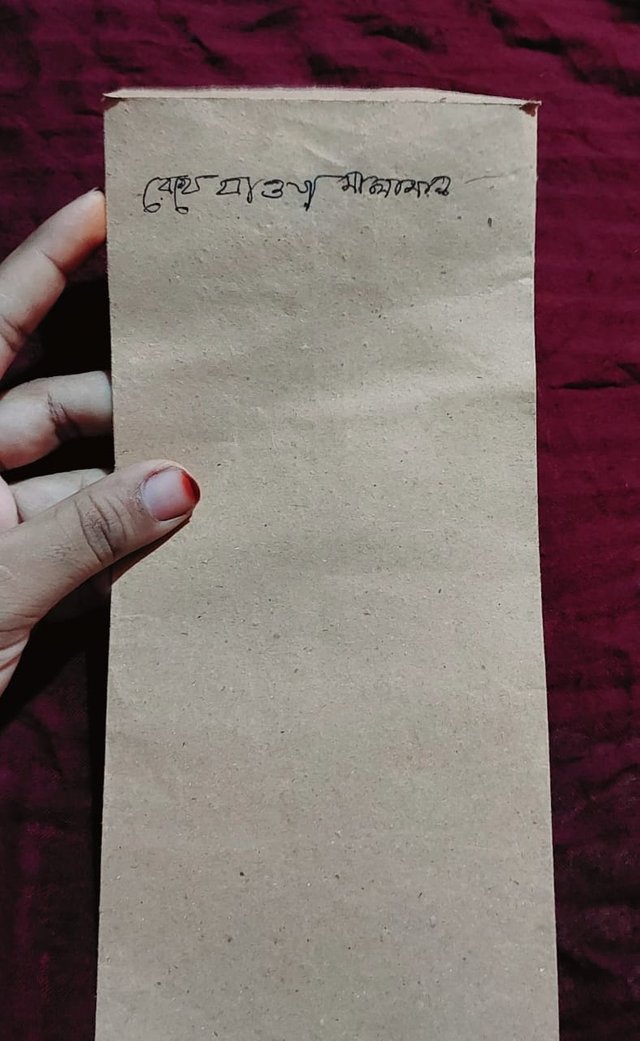 রেখে যাওয়া মালামাল